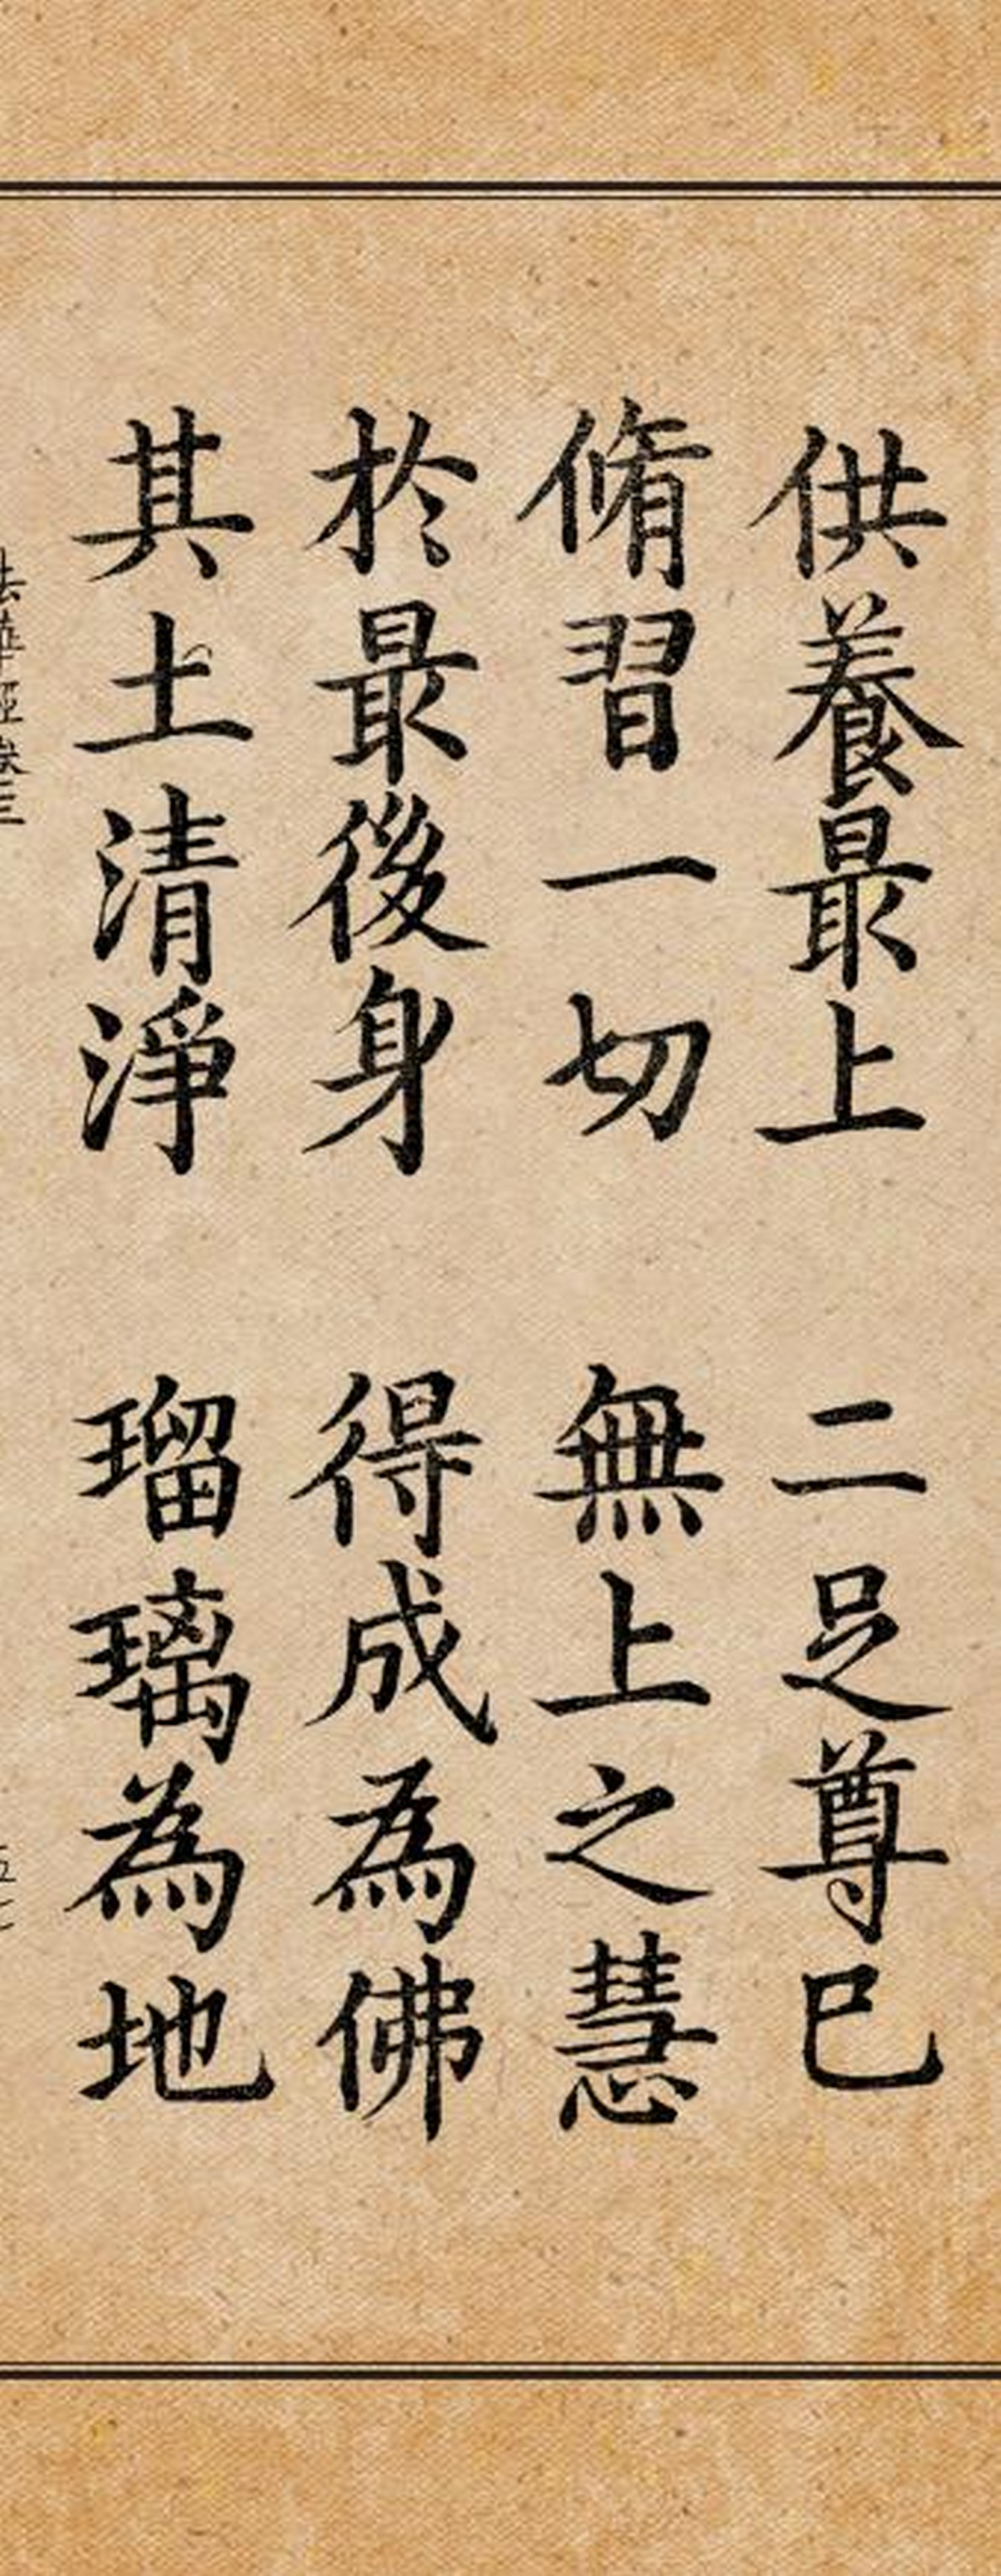 供養最上 二足尊已
脩習一切 無上之慧
於最後身 得成為佛
其土清淨 瑠璃為地